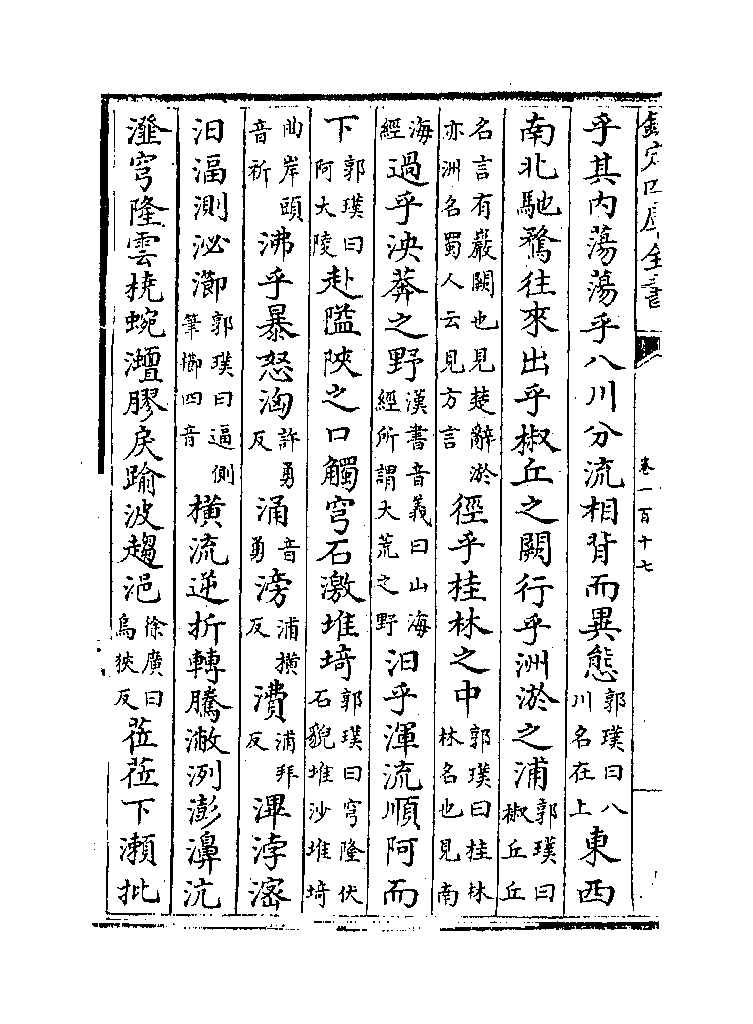 欽定四庫全書
卷一百十七
乎其内蕩蕩乎八川分流相背而異態郭璞曰八川名在上東西
南北馳騖往來出乎椒丘之闕行乎洲淤之浦郭璞曰椒丘丘
名言有巖闕也見楚辭淤亦洲名蜀人云見方言徑乎桂林之中郭璞曰桂林林名也見南
海經過乎泱莽之野漢書音義曰山海經所謂大荒之野汩乎渾流順阿而
下郭璞曰阿大陵赴隘陜之口觸穹石激堆埼郭璞曰穹隆伏石貌堆沙堆埼
曲岸頭音祈沸乎暴怒洶許勇反涌音勇滂浦橫反濆浦拜反滭浡滵
汨湢測泌瀄郭璞曰逼側筆櫛四音橫流逆折轉騰潎洌澎濞沆
瀣穹隆雲橈蜿灗膠戾踰波趨浥徐廣曰烏狹反莅莅下瀨批